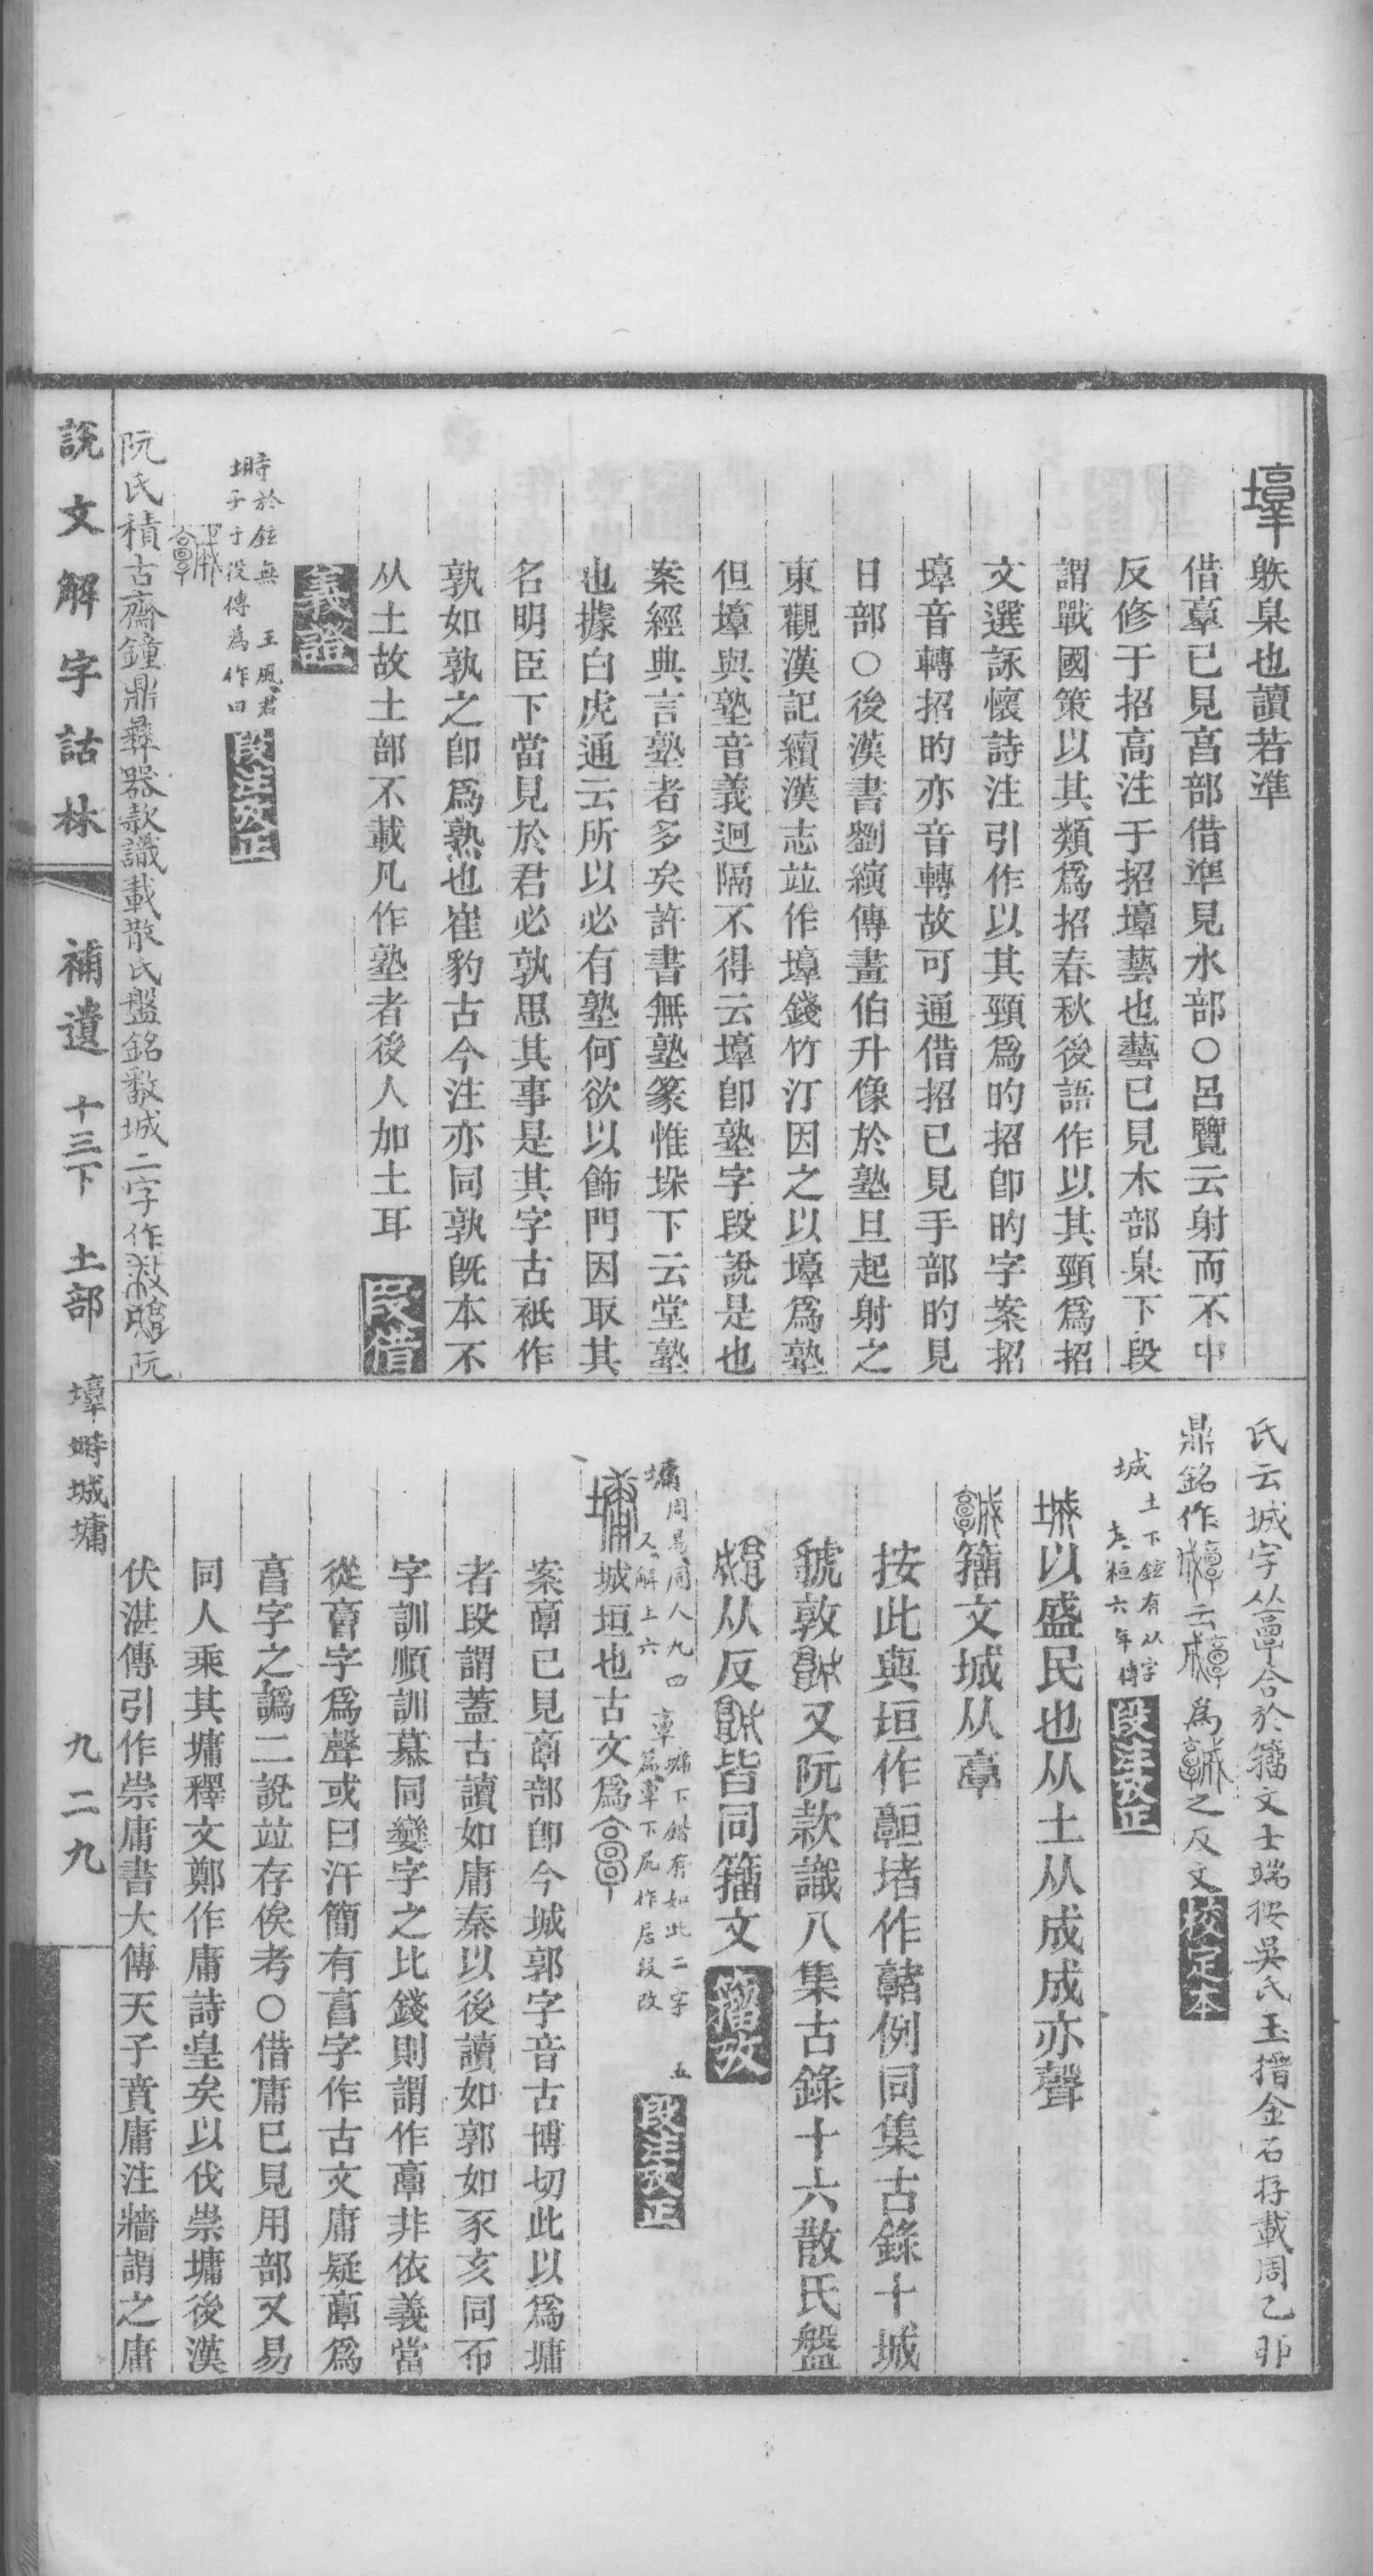 𡑈躲臬也讀若準
借𦎧已見㐭部借準見水部○呂覽云射而不中
反修于招高注于招𡑈藝也藝已見木部臬下段
謂戰國策以其類爲招春秋後語作以其頸爲招
文選詠懷詩注引作以其頸爲旳招卽旳字案招
𡑈音轉招旳亦音轉故可通借招已見手部旳見
日部○後漢書劉縯傳畫伯升像於塾旦起射之
東觀漢記續漢志竝作𡑈錢竹汀因之以𡑈爲塾
但𡑈與塾音義迥隔不得云𡑈卽塾字段說是也
案經典言塾者多矣許書無塾篆惟垛下云堂塾
也據白虎通云所以必有塾何欲以飾門因取其
名明臣下當見於君必孰思其事是其字古祇作
孰如孰之卽爲熟也崔豹古今注亦同孰旣本不
从土故土部不載凡作塾者後人加土耳　段借
義證
塒於鉉無　王風君
塒子于役傳爲作曰　段注攷正
阮氏積古齋鐘鼎彝器款識載散氏盤銘　城二字作　阮
氏云城字从𩫏合於籀文士端按吳氏玉搢金石存載周乙邜
鼎銘作　云　爲　之反文　校定本
城　土下鉉有从字
左桓六年傳　段注攷正
城以盛民也从土从成成亦聲
𩫨籒文城从𩫏
按此與垣作𩫫堵作𩫭例同集古錄十城
虢敦　又阮款識八集古錄十六散氏盤
　从反　皆同籒文　籀攷
墉　周易同人九四　𩫏　墉下鍇有如此二字　五
又解上六　篇𩫏下凥作居段改　段注攷正
墉城垣也古文爲𩫏
案𩫏已見𩫏部卽今城郭字音古博切此以爲墉
者段謂蓋古讀如庸秦以後讀如郭如豕亥同而
字訓順訓慕同孌字之比錢則謂作𩫏非依義當
從𩫖字爲聲或曰汗簡有𩫖字作古文庸疑𩫏爲
𩫖字之譌二說竝存俟考○借庸已見用部又易
同人乘其墉釋文鄭作庸詩皇矣以伐崇墉後漢
伏湛傳引作崇庸書大傳天子賁庸注牆謂之庸
說文解字詁林　補遺　十三下　土部　𡑈塒城墉　九二九